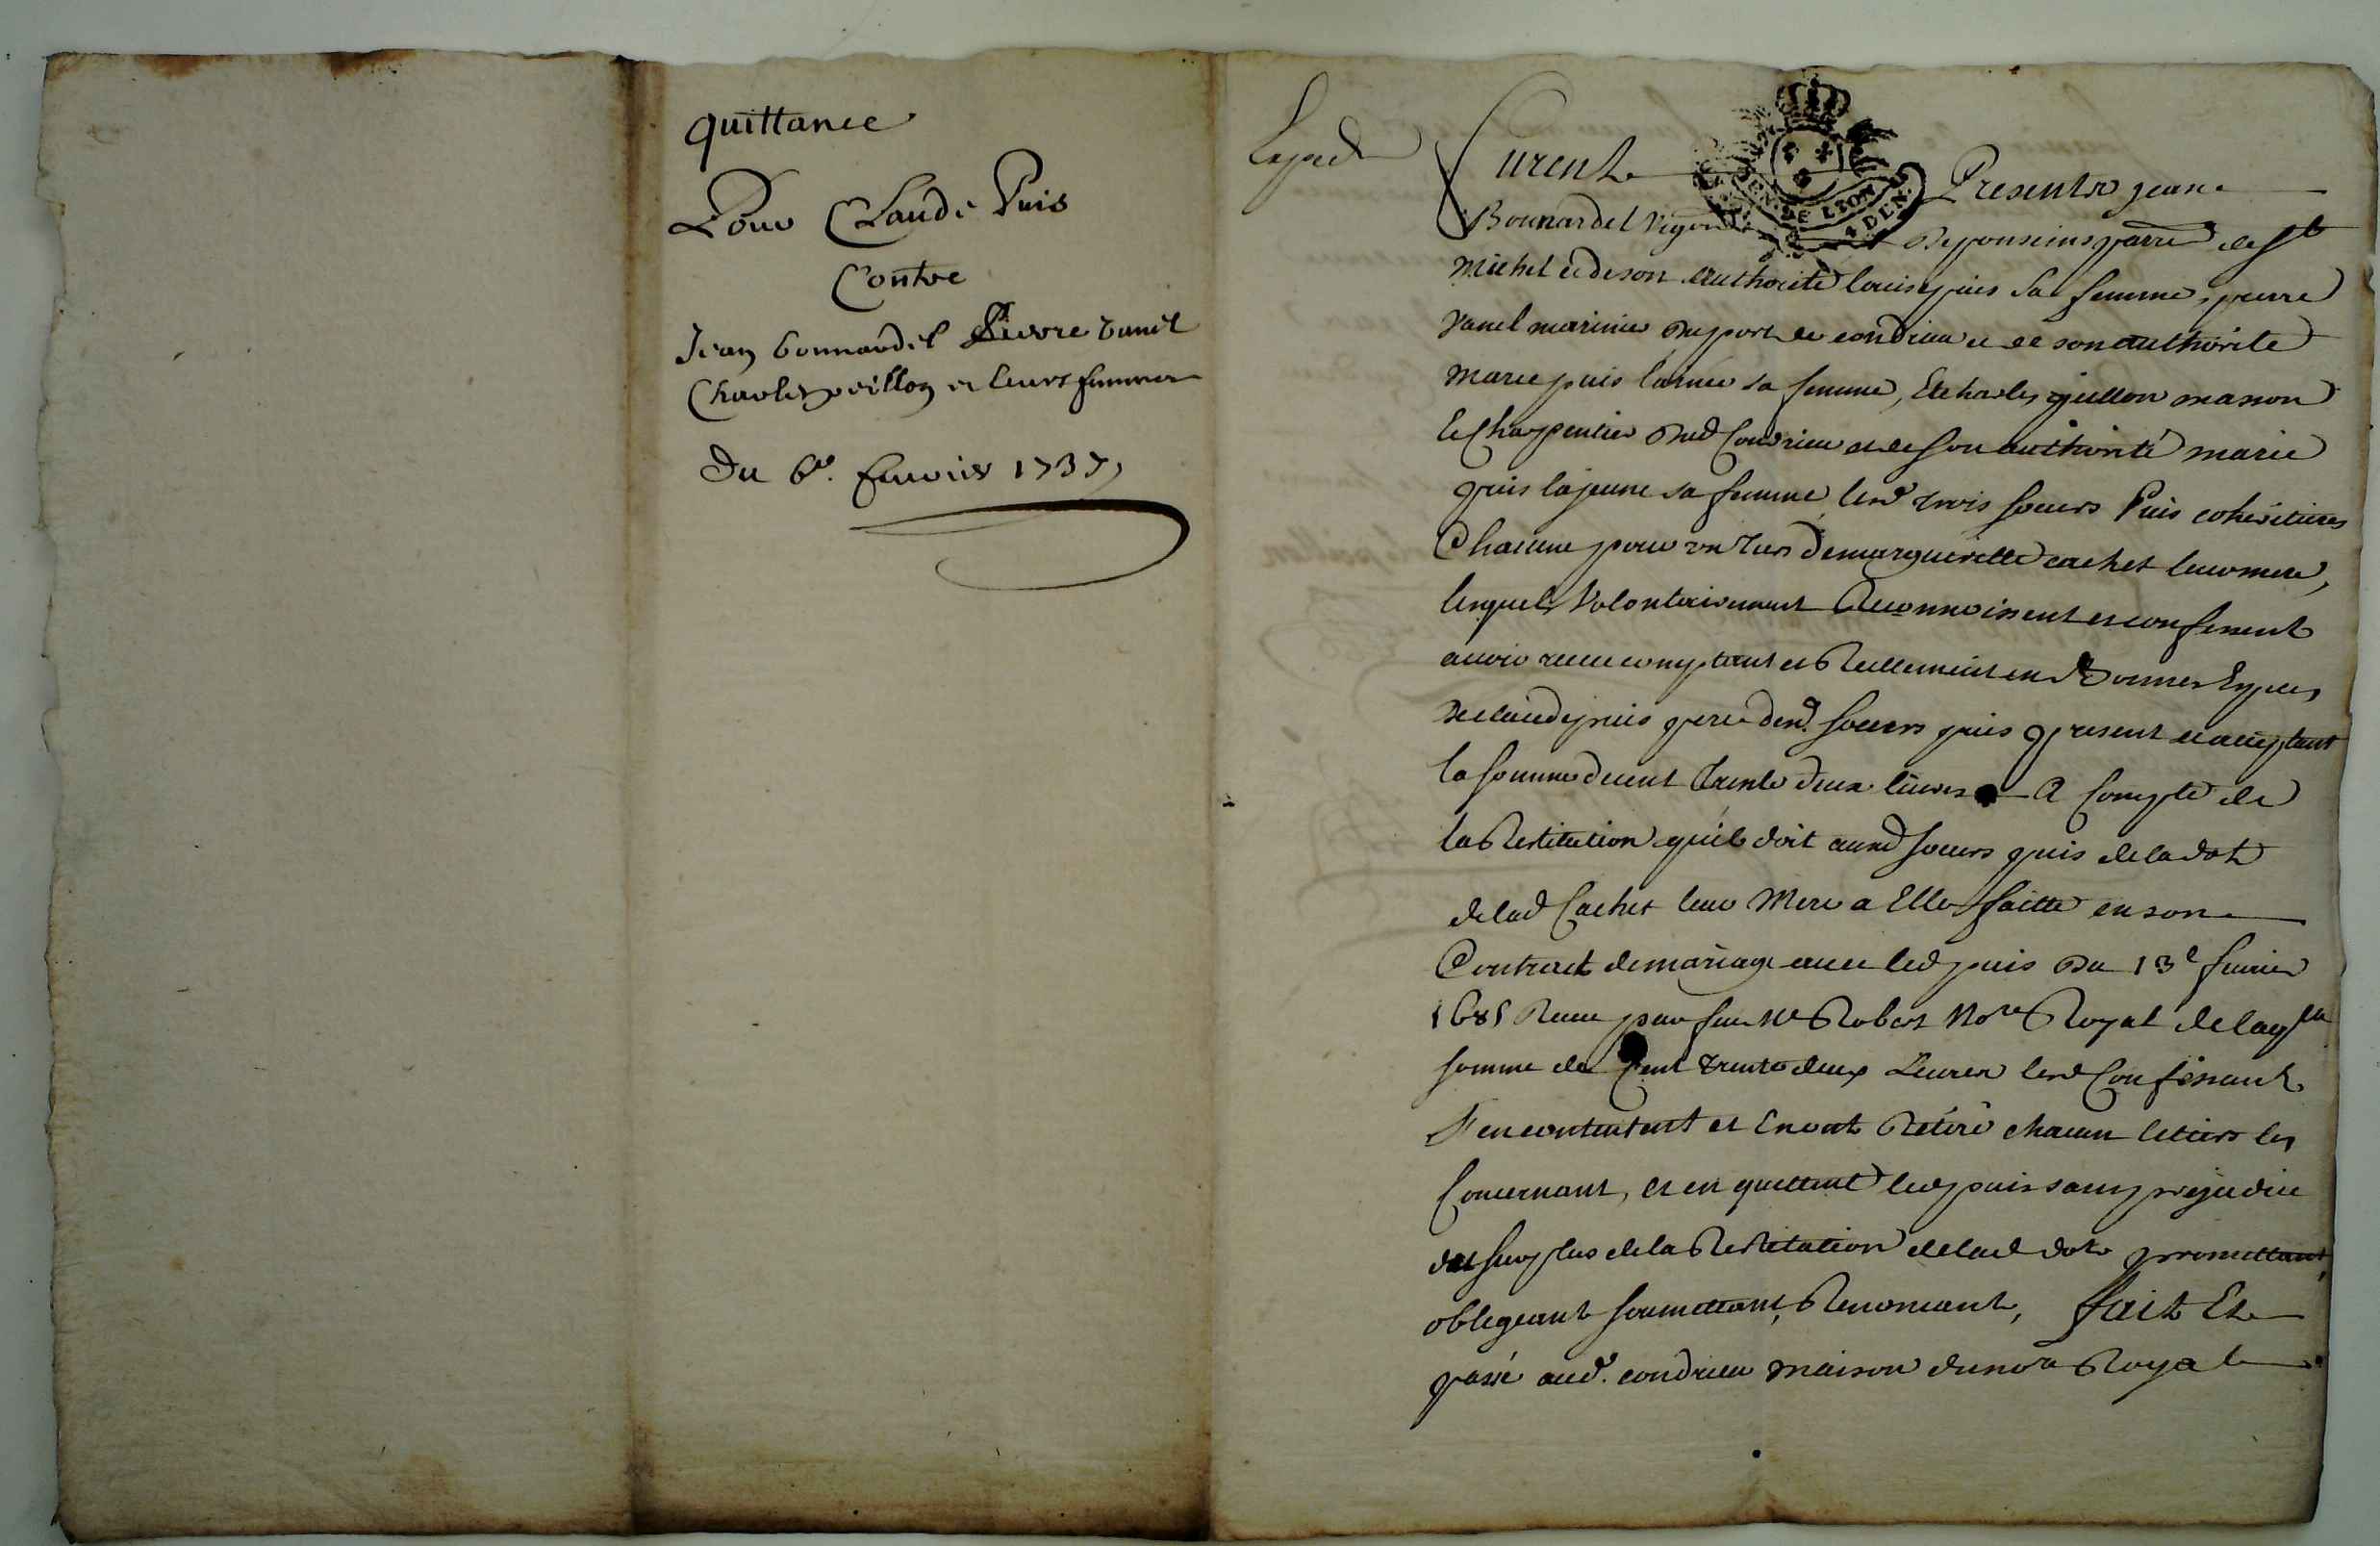 quittance
Pour Claude Puis
Contre
Jean bonnardel Pierre vanel
Charles et leurs femmes
Du 6e. feuvier 1737
Exped
furent Presents jean
GEN DE LYON
4 DEN.
Bonnardel Vigneron de ponsins parre de St
Michel et de son authorité louise puis sa femme, pierre
vanel marinier du port de condrieu et de son authorité
marie puis l'ainée sa femme, Et charles masson
et Charpentier dud Condrieu et de son authorité marie
puis la jeune sa femme, lesd trois soeurs Puis coheritieres
Chacune pour un tiers de margueritte cachet leur mere,
lesquels Volontairement Reconnoissent et confessent
avoir receu comptant et Reellement en bonnes Especes
de claude puis pere desd. soeurs puis present et acceptant
la somme de cent trente deux livres A Compte de
la Restitution quil doit ausd soeurs puis de la dot
de lad Cachet leur Mere a Elle faitte en son
Contract de mariage avec led puis Du 13e fevrier
1685 Receu par feu Me Robert Nore Royal de laqlle
somme de Cent trente deux Livres lesd Confessants
s'en contentent et En ont Retiré chacun le tiers les
Concernant, et en quittent led puis sans prejudice
du surplus de la Restitution de lad dot promettant,
obligeant soumettant, Renonçant, fait Et
passé aud. condrieu maison du nore Royal